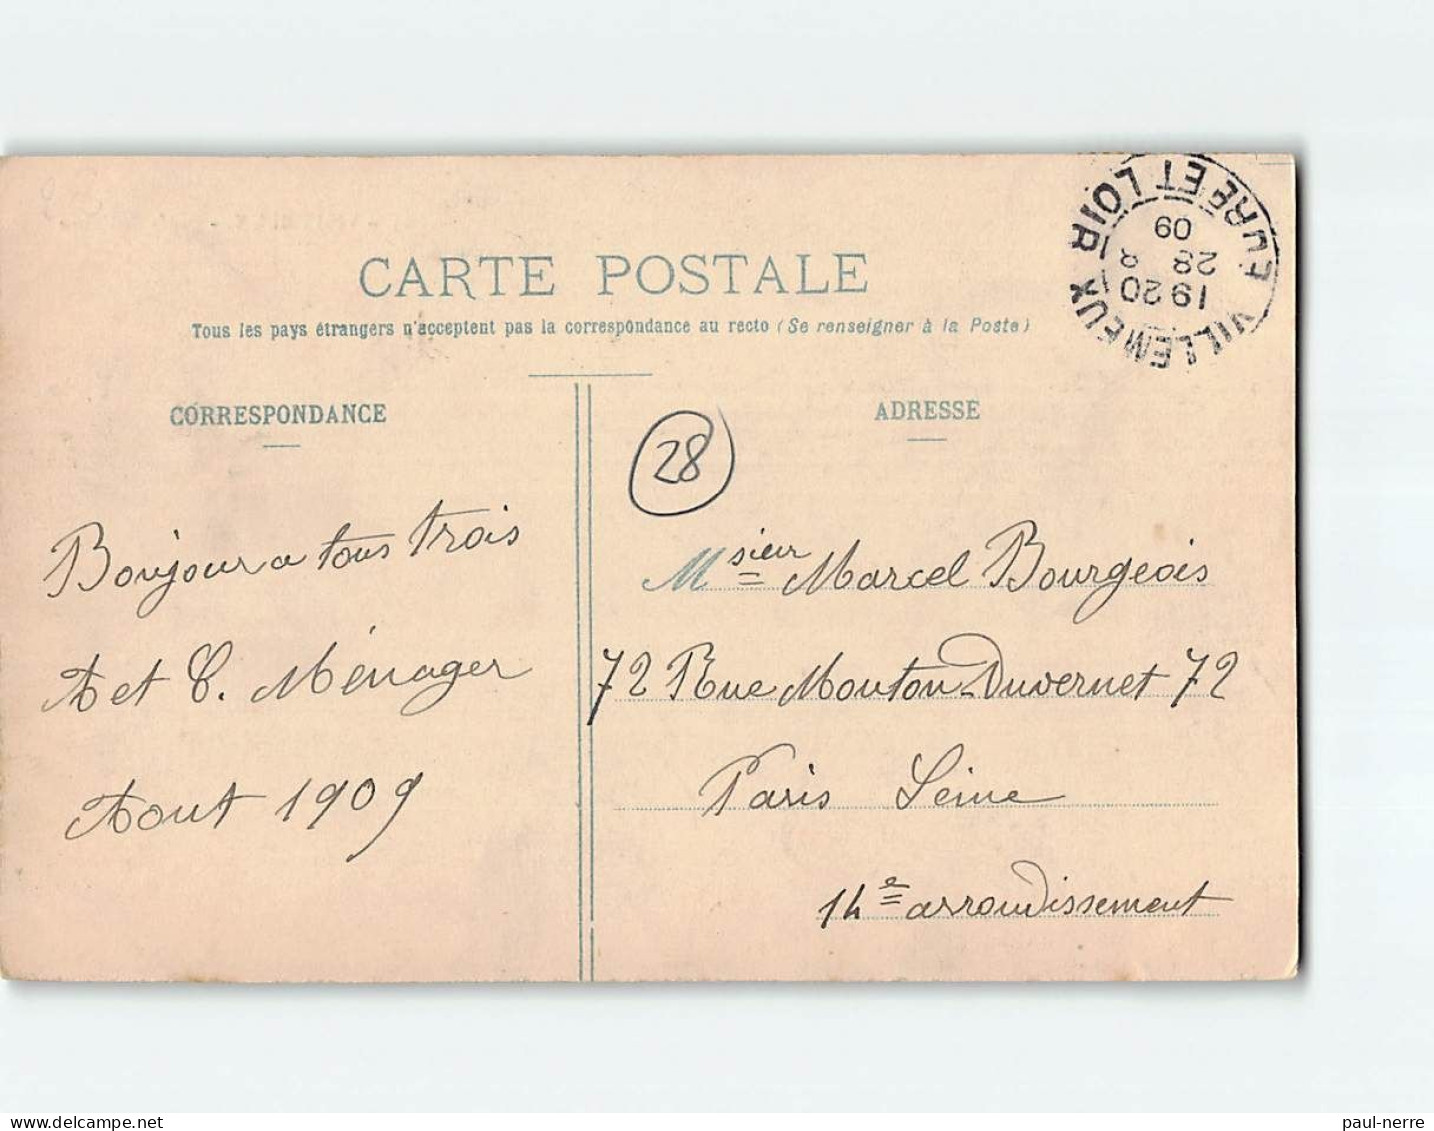 CARTE POSTALE
Tous les pays étrangers n'acceptent pas la correspondance au recto (Se renseigner à la Poste)
CORRESPONDANCE
ADRESSE
28
Bonjour a tous trois
A et C. Ménager
Aout 1909
Msieur Marcel Bourgeois
72 Rue Mouton-Duvernet 72
Paris Seine
14e arrondissement
VILLEMEUX EURE ET LOIR
19 20
28 8
09
paul-nerre